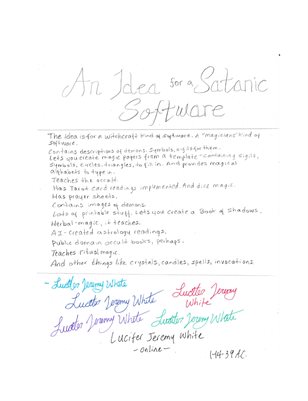 An Idea for a Satanic
Software
The idea is for a Witchcraft kind of software. A "magicians" kind of
software.
Contains descriptions of demons. Symbols, sigils for them.
Lets you create magic papers from a template - containing sigils,
symbols, circles, triangles, to fill in. And provides magical
alphabets to type in.
Teaches the occult.
Has Tarot card readings implemented. And dice magic.
Has prayer sheets.
Contains images of demons.
Lots of printable stuff. Lets you create a Book of Shadows.
Herbal-magic, it teaches.
AI-created astrology readings.
Public domain occult books, perhaps.
Teaches ritual magic.
And other things like crystals, candles, spells, invocations
- Lucifer Jeremy White
Lucifer Jeremy White
Lucifer Jeremy
White
Lucifer Jeremy White
Lucifer Jeremy White
Lucifer Jeremy White
- online -